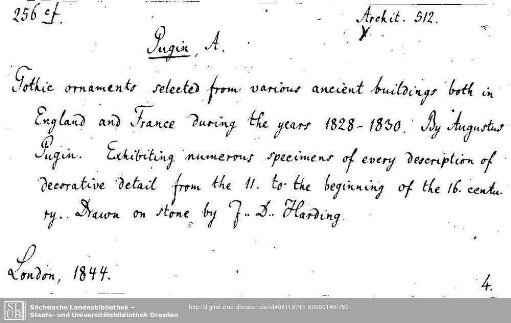 256 cf.
Archit. 512.
Pugin, A.
Gothic ornaments selected from various ancient buildings both in
England and France during the years 1828-1830. By Augustus
Pugin. Exhibiting numerous specimens of every description of
decorative detail from the 11. to the beginning of the 16. centu-
ry.. Drawn on stone by J. D. Harding.
London, 1844.
4.
SLUB
Sächsische Landesbibliothek –
Staats- und Universitätsbibliothek Dresden